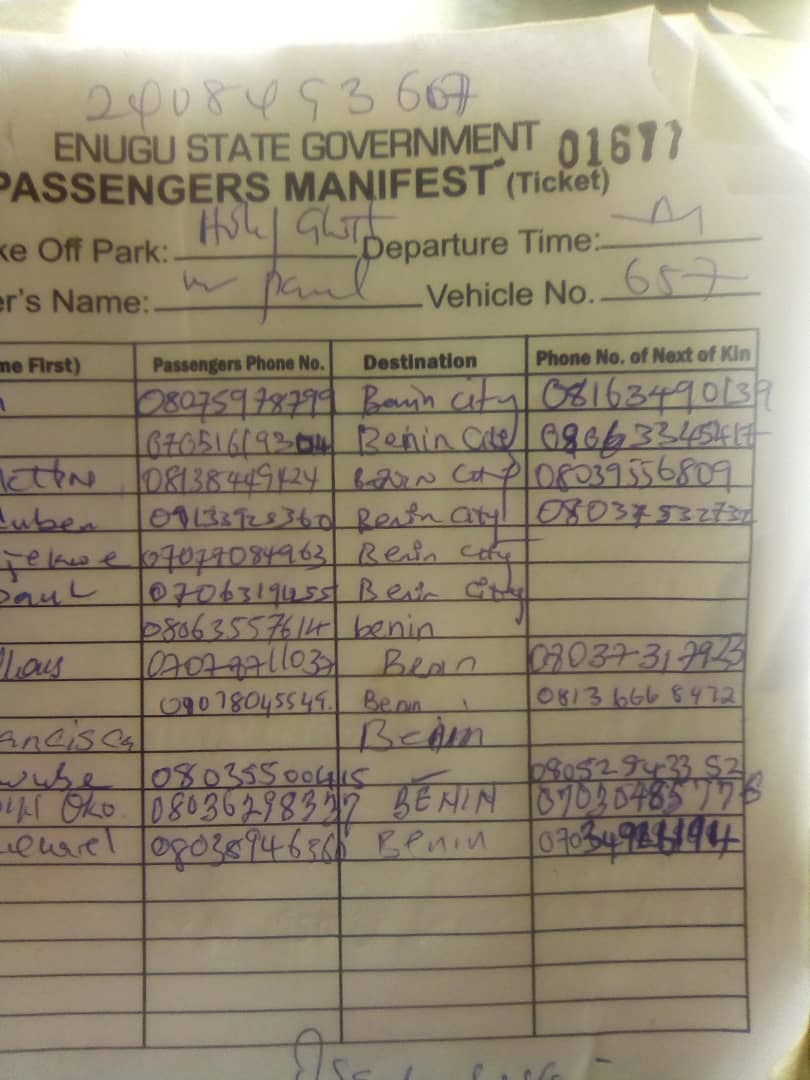 2408493667
ENUGU STATE GOVERNMENT 01677
PASSENGERS MANIFEST (Ticket)
ke Off Park: Holy Ghost Departure Time:
er's Name: Mr paul Vehicle No. 657
me First) Passengers Phone No. Destination Phone No. of Next of Kin
08075978799 Benin city 08163490139
Benin City
08138449424 Benin City 08039556809
uben 09133925360 Benin City 08037532732
jekwe 07077084963 Benin city
paul 0706319455 Benin City
08063557614 benin
Benin 08037317923
09078045549. Benin 08136668472
ancisca Benin
08035500415 08052943352
Oko. 08036298327 BENIN 07030485776
Benin